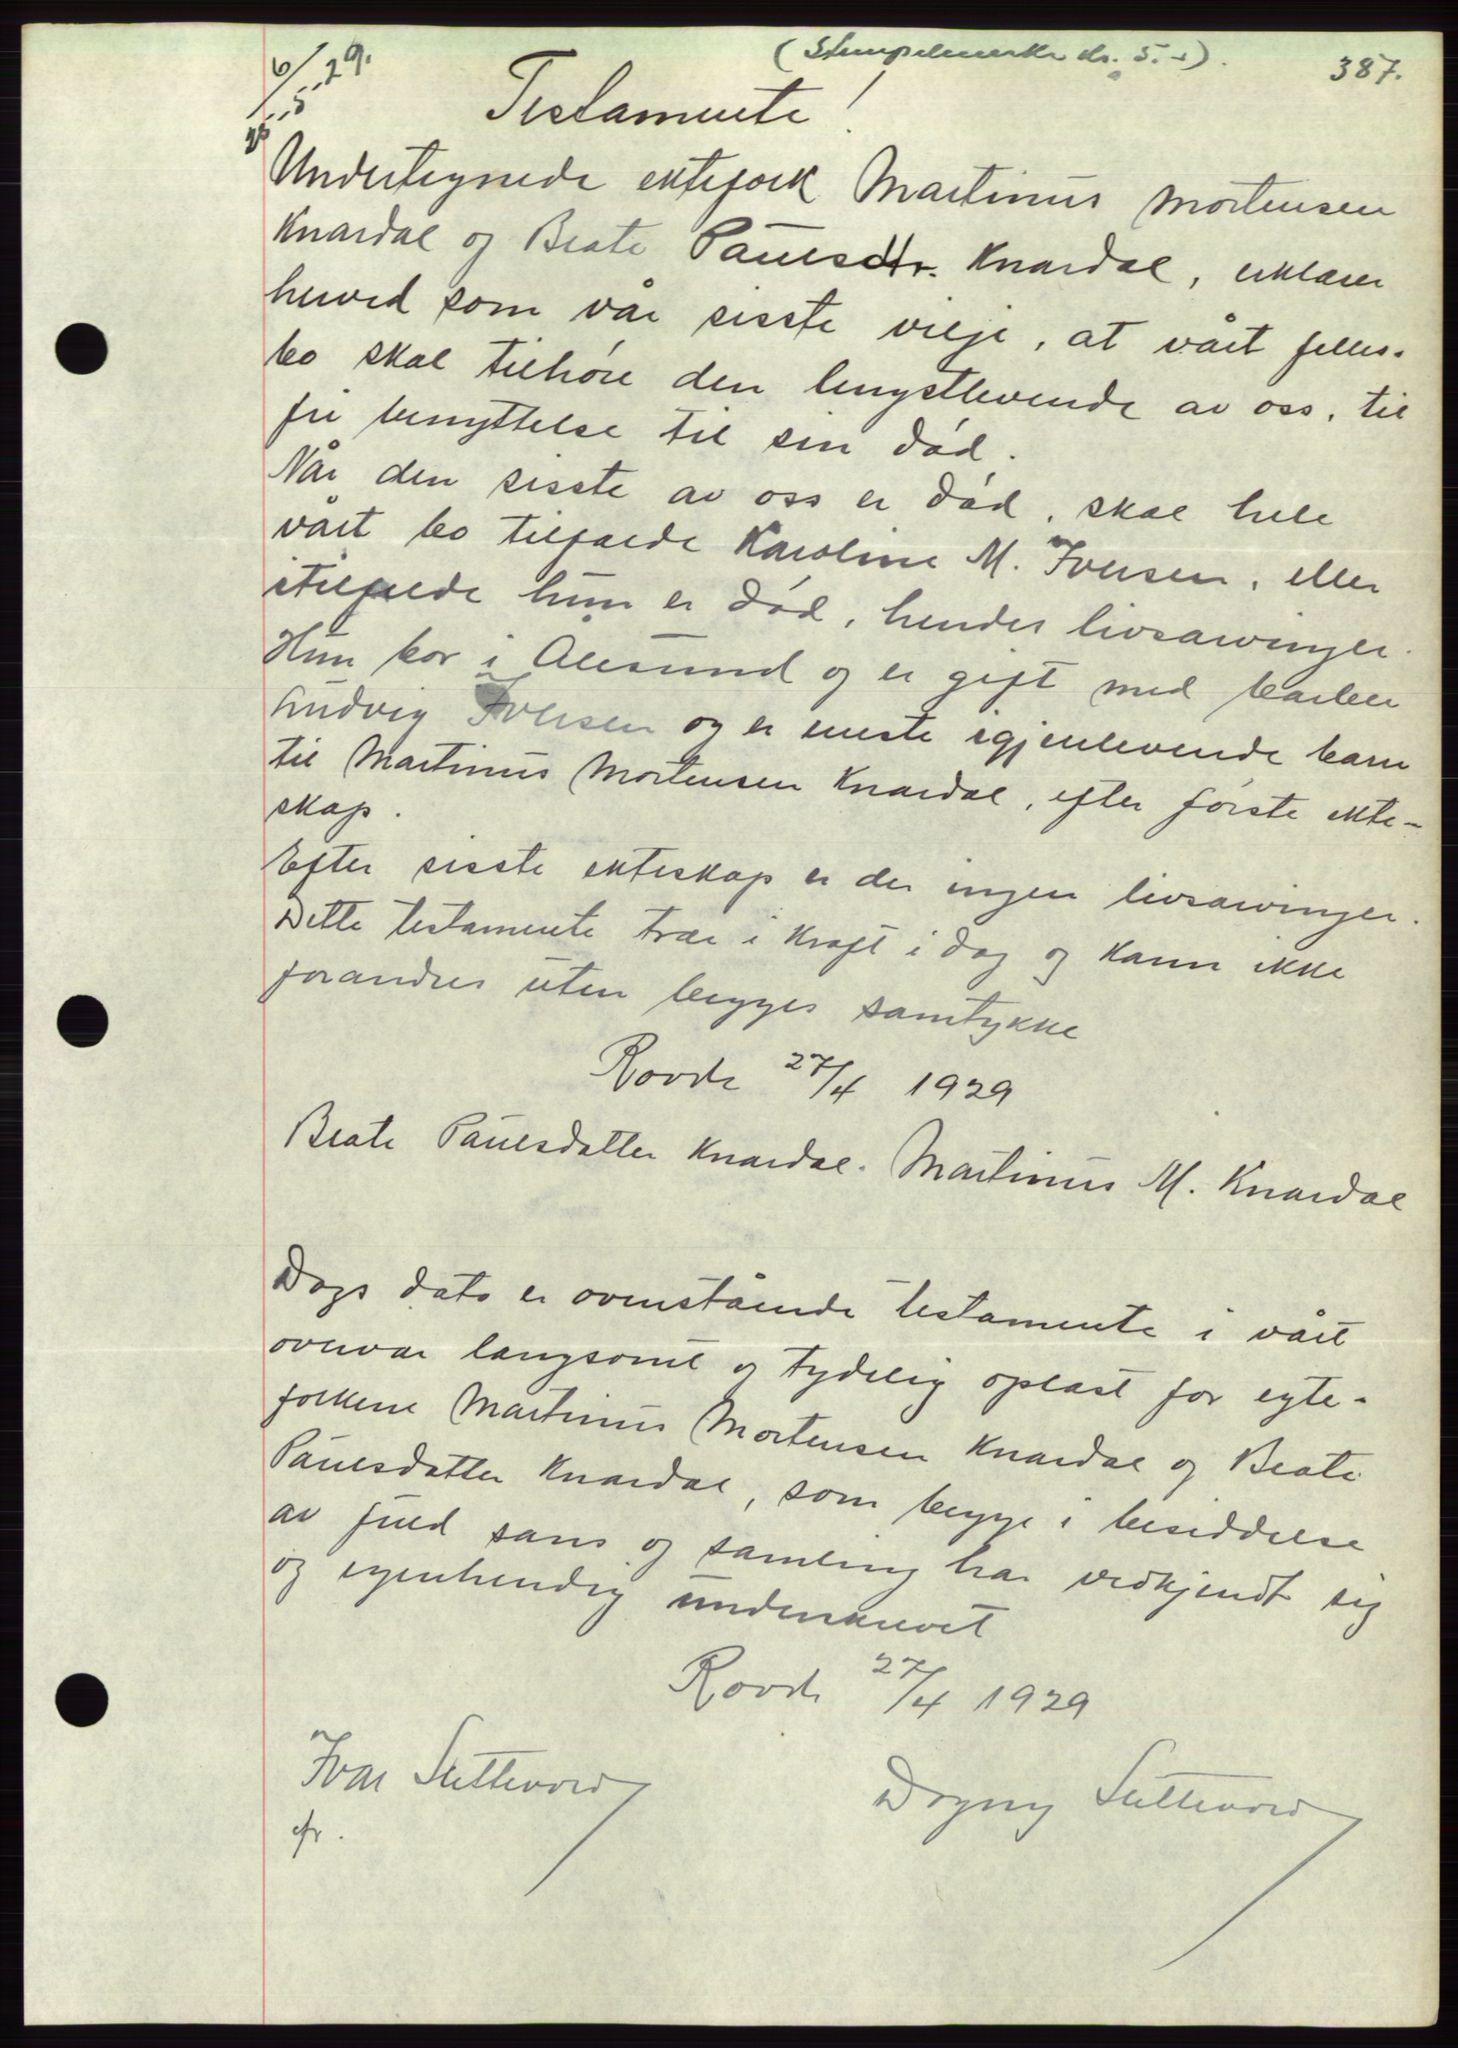 (Stempelmerke kr. 5.-).
387.
6/5.29.
Testamente!
Undertegnede ektefolk Martinus Mortensen
Knardal og Beate Paulsdtr. Knardal, erklærer
herved som vår sisste vilje, at vårt felles-
bo skal tilhøre den lengstlevende av oss, til
fri benyttelse til sin død.
Når den sisste av oss er død, skal hele
vårt bo tilfalde Karoline M. Iversen, eller
itilfelde hun er død, hendes livsarvinger.
Hun bor i Ålesund og er gift med barber
Ludvig Iversen og er eneste igjenlevende barn
til Martinus Mortensen Knardal, efter første ekte-
skap.
Efter sisste ekteskap er der ingen livsarvinger.
Dette testamente træ i kraft i dag og kann ikke
forandres uten begges samtykke
Rovde 27/4 1929
Beate Paulsdatter Knardal. Martinus M. Knardal
Dags dato er ovenstående testamente i vårt
overvær langsomt og tydelig oplæst for egte-
folkene Martinus Mortensen Knardal og Beate
Paulsdatter Knardal, som begge i besiddelse
av fuld sans og samling har vedkjendt sig
og egenhendig underskrevet
Rovde 27/4 1929
Ivar Sættevold
Dagny Sættevold